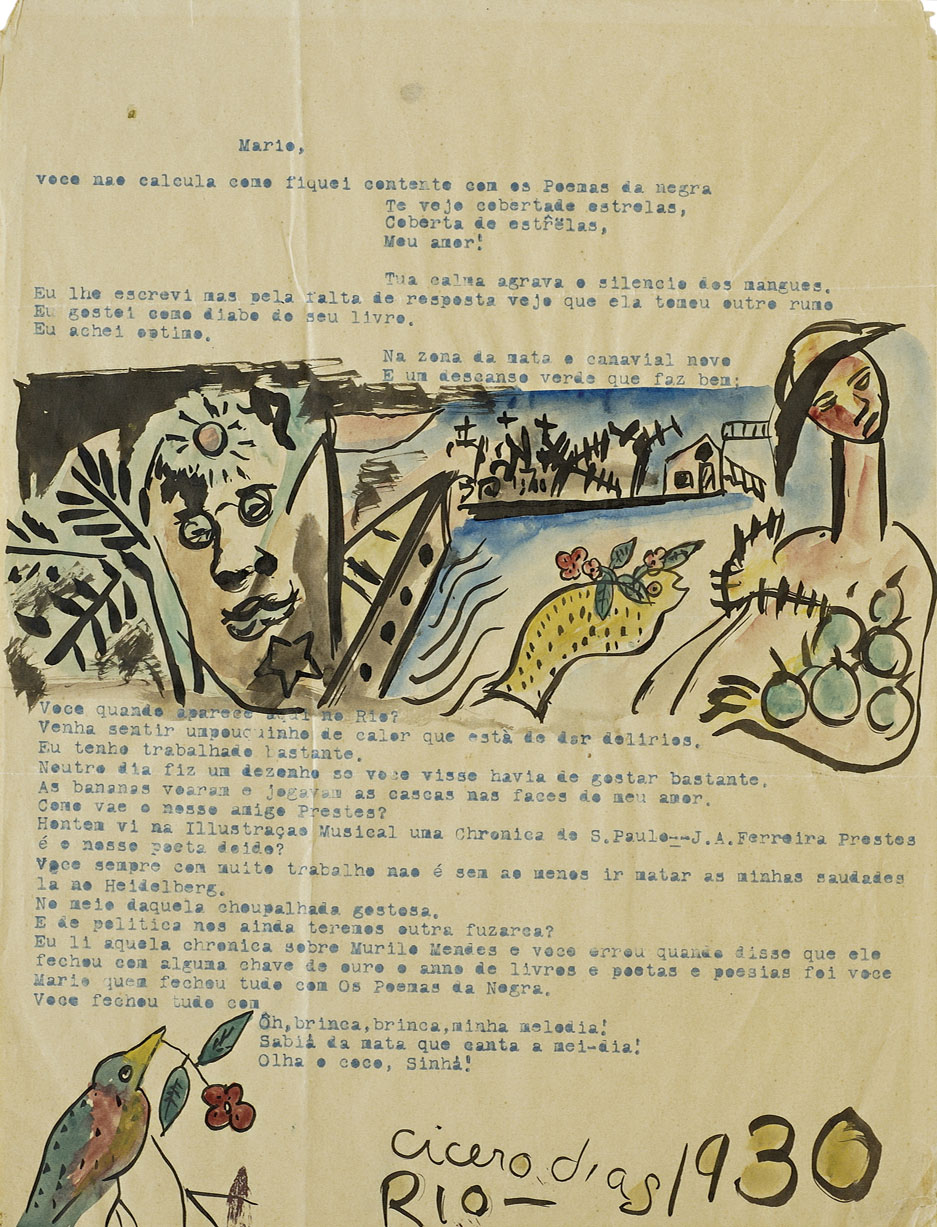 Mario,
voce nao calcula como fiquei contente com os Poemas da negra
Te vejo cobertade estrelas,
Coberta de estrêlas,
Meu amor!
Tua calma agrava o silencio dos mangues.
Eu lhe escrevi mas pela falta de resposta vejo que ela tomou outro rumo
Eu gostei como diabo do seu livro.
Eu achei optimo.
Na zona da mata o canavial novo
E um descanso verde que faz bem;
Voce quando aparece aqui no Rio?
Venha sentir umpouquinho de calor que està de dar delirios.
Eu tenho trabalhado bastante.
Noutro dia fiz um dezenho se voce visse havia de gostar bastante.
As bananas voaram e jogavam as cascas nas faces do meu amor.
Como vae o nosso amigo Prestes?
Hontem vi na Illustraçao Musical uma Chronica de S.Paulo--J.A.Ferreira Prestes
é o nosso poeta doido?
Voce sempre com muito trabalho nao é sem ao menos ir matar as minhas saudades
la no Heidelberg.
No meio daquela choupalhada gostosa.
E de politica nos ainda teremos outra fuzarca?
Eu li aquela chronica sobre Murilo Mendes e voce errou quando disse que ele
fechou com alguma chave de ouro o anno de livros e poetas e poesias foi voce
Mario quem fechou tudo com Os Poemas da Negra.
Voce fechou tudo com
Ôh,brinca,brinca,minha melodia!
Sabiá da mata que canta a mei-dia!
Olha o coco, Sinhá!
cicero dias 1930
RIO—